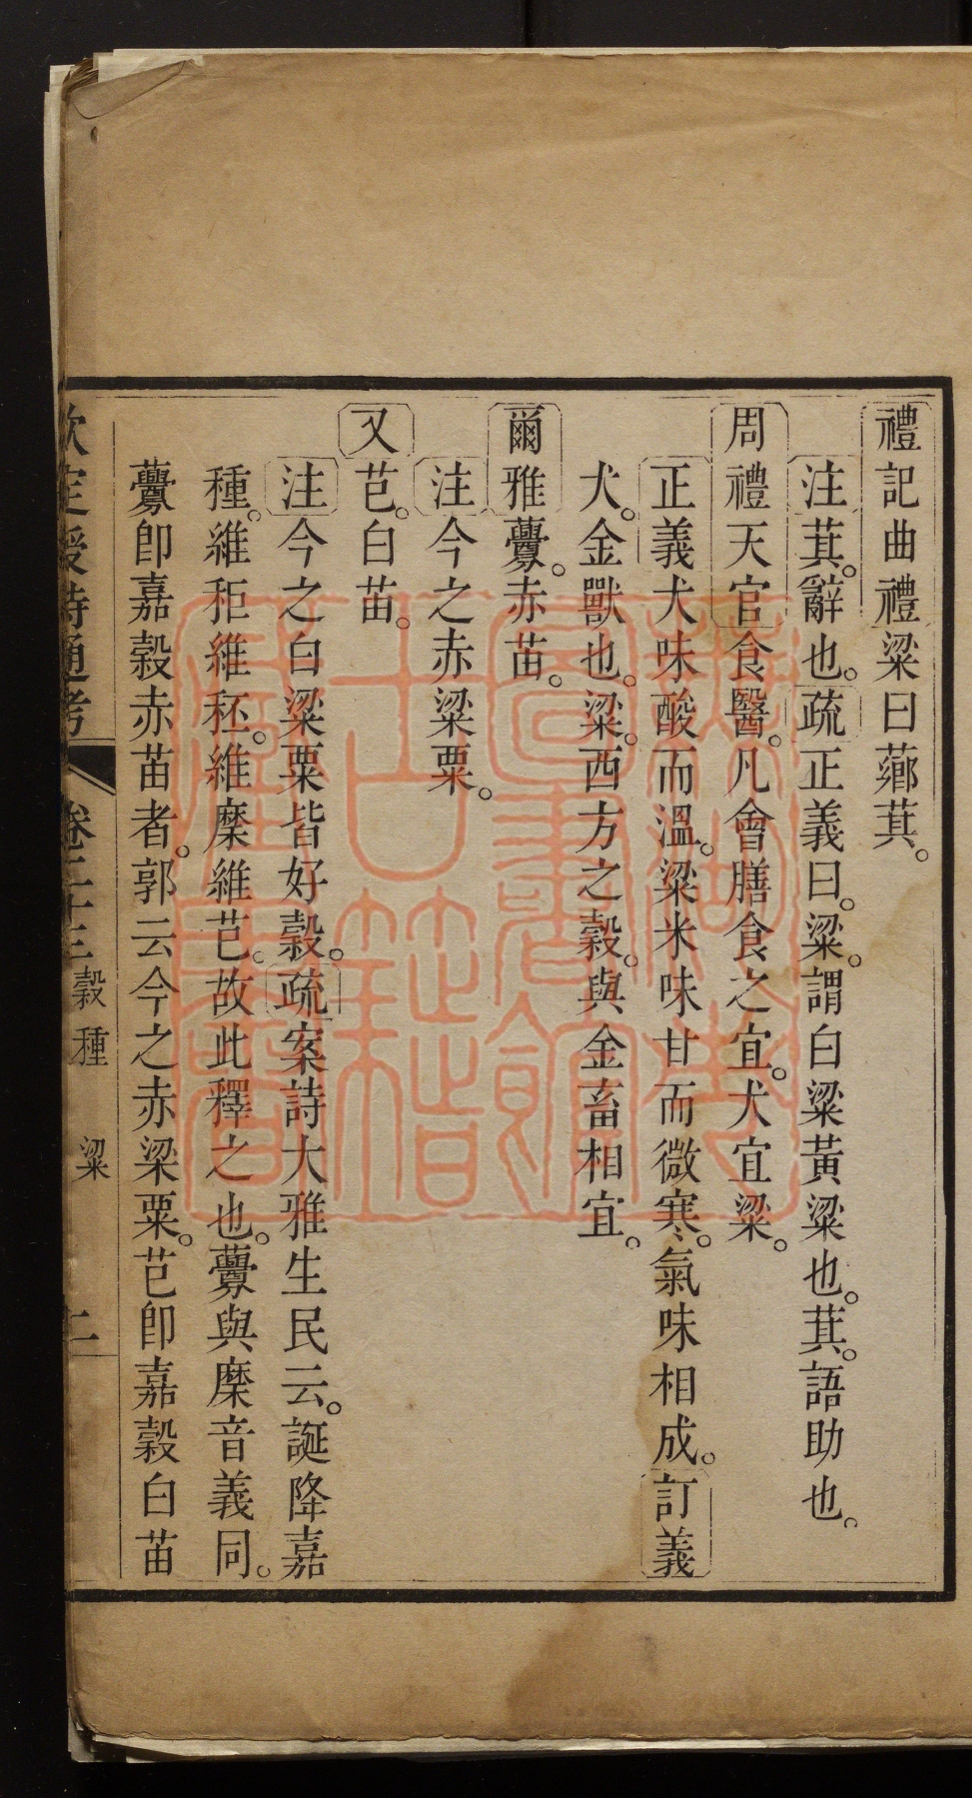 禮記曲禮粱曰薌萁。
注萁。辭也。疏正義曰。粱。謂白粱黃粱也。萁。語助也。
周禮天官食醫。凡會膳食之宜。犬宜粱。
正義犬味酸而溫。粱米味甘而微寒。氣味相成。訂義
犬。金獸也。粱。西方之穀。與金畜相宜。
爾雅虋。赤苗。
注今之赤粱粟。
又芑。白苗。
注今之白粱粟皆好穀。疏案詩大雅生民云。誕降嘉
種。維秬維秠。維穈維芑。故此釋之也。虋與穈音義同。
虋卽嘉穀赤苗者。郭云今之赤粱粟。芑卽嘉穀白苗
欽定授時通考 卷二十三 穀種 粱 二